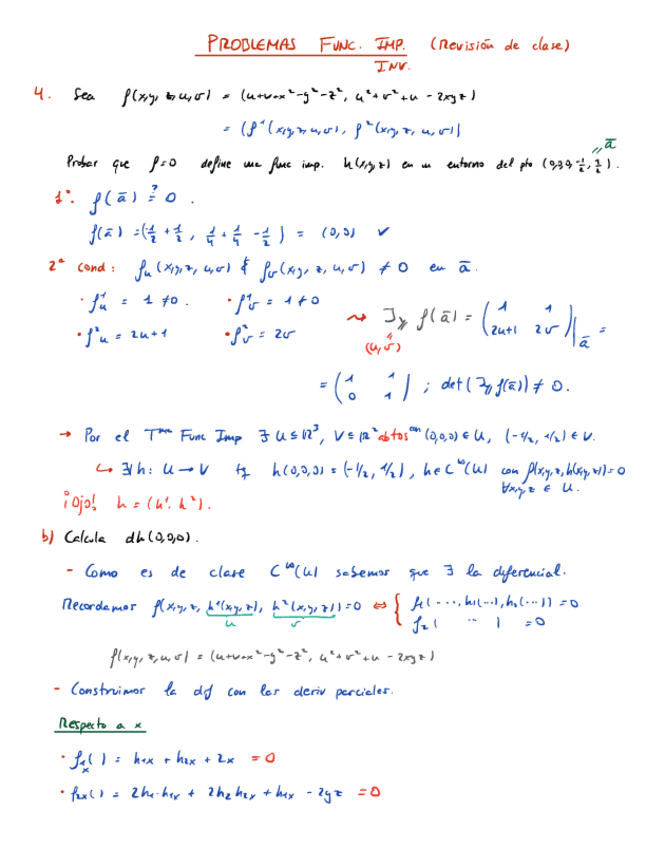 PROBLEMAS FUNC. IMP. (Revisión de clase)
INV.
4. Sea f(x,y,z,u,v) = (u+v+x²-y²-z², u²+v²+u-2xyz)
= (f¹(x,y,z,u,v), f²(x,y,z,u,v))
Probar que f=0 define una func imp. h(x,y,z) en un entorno del pto (0,0,0,-1/2,1/2). = ā
1º. f(ā) ?= 0.
f(ā) = (-1/2 + 1/2, 1/4 + 1/4 - 1/2) = (0,0) ✓
2ª cond: fu(x,y,z,u,v) & fv(x,y,z,u,v) ≠ 0 en ā.
· f¹u = 1 ≠ 0. · f¹v = 1 ≠ 0
· f²u = 2u+1 · f²v = 2v ⇝ Jy f(ā) = (1 1 / 2u+1 2v)|ā =
(u,v)
= (1 1 / 0 1) ; det(Jy f(ā)) ≠ 0.
→ Por el Tma Func Imp ∃ U ⊆ ℝ³, V ⊆ ℝ² abtos con (0,0,0) ∈ U, (-1/2, 1/2) ∈ V.
↳ ∃! h: U → V tq h(0,0,0) = (-1/2, 1/2), h ∈ C^∞(U) con f(x,y,z,h(x,y,z)) = 0
∀x,y,z ∈ U.
¡Ojo! h = (h¹, h²).
b) Calcula dh(0,0,0).
- Como es de clase C^∞(U) sabemos que ∃ la diferencial.
Recordamos f(x,y,z, h¹(x,y,z), h²(x,y,z)) = 0 ⇔ { f₁(..., h₁(...), h₂(...)) = 0
u v f₂( ... ) = 0
f(x,y,z,u,v) = (u+v+x²-y²-z², u²+v²+u-2xyz)
- Construimos la dif con las deriv parciales.
Respecto a x
· f₁x( ) = h₁x + h₂x + 2x = 0
· f₂x( ) = 2h₁·h₁x + 2h₂h₂x + h₁x - 2yz = 0